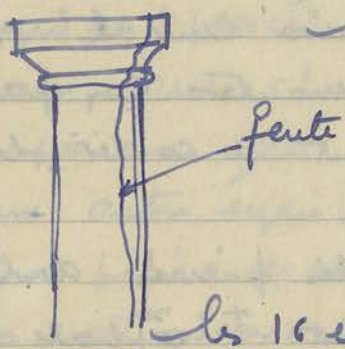 fente
les 16 e